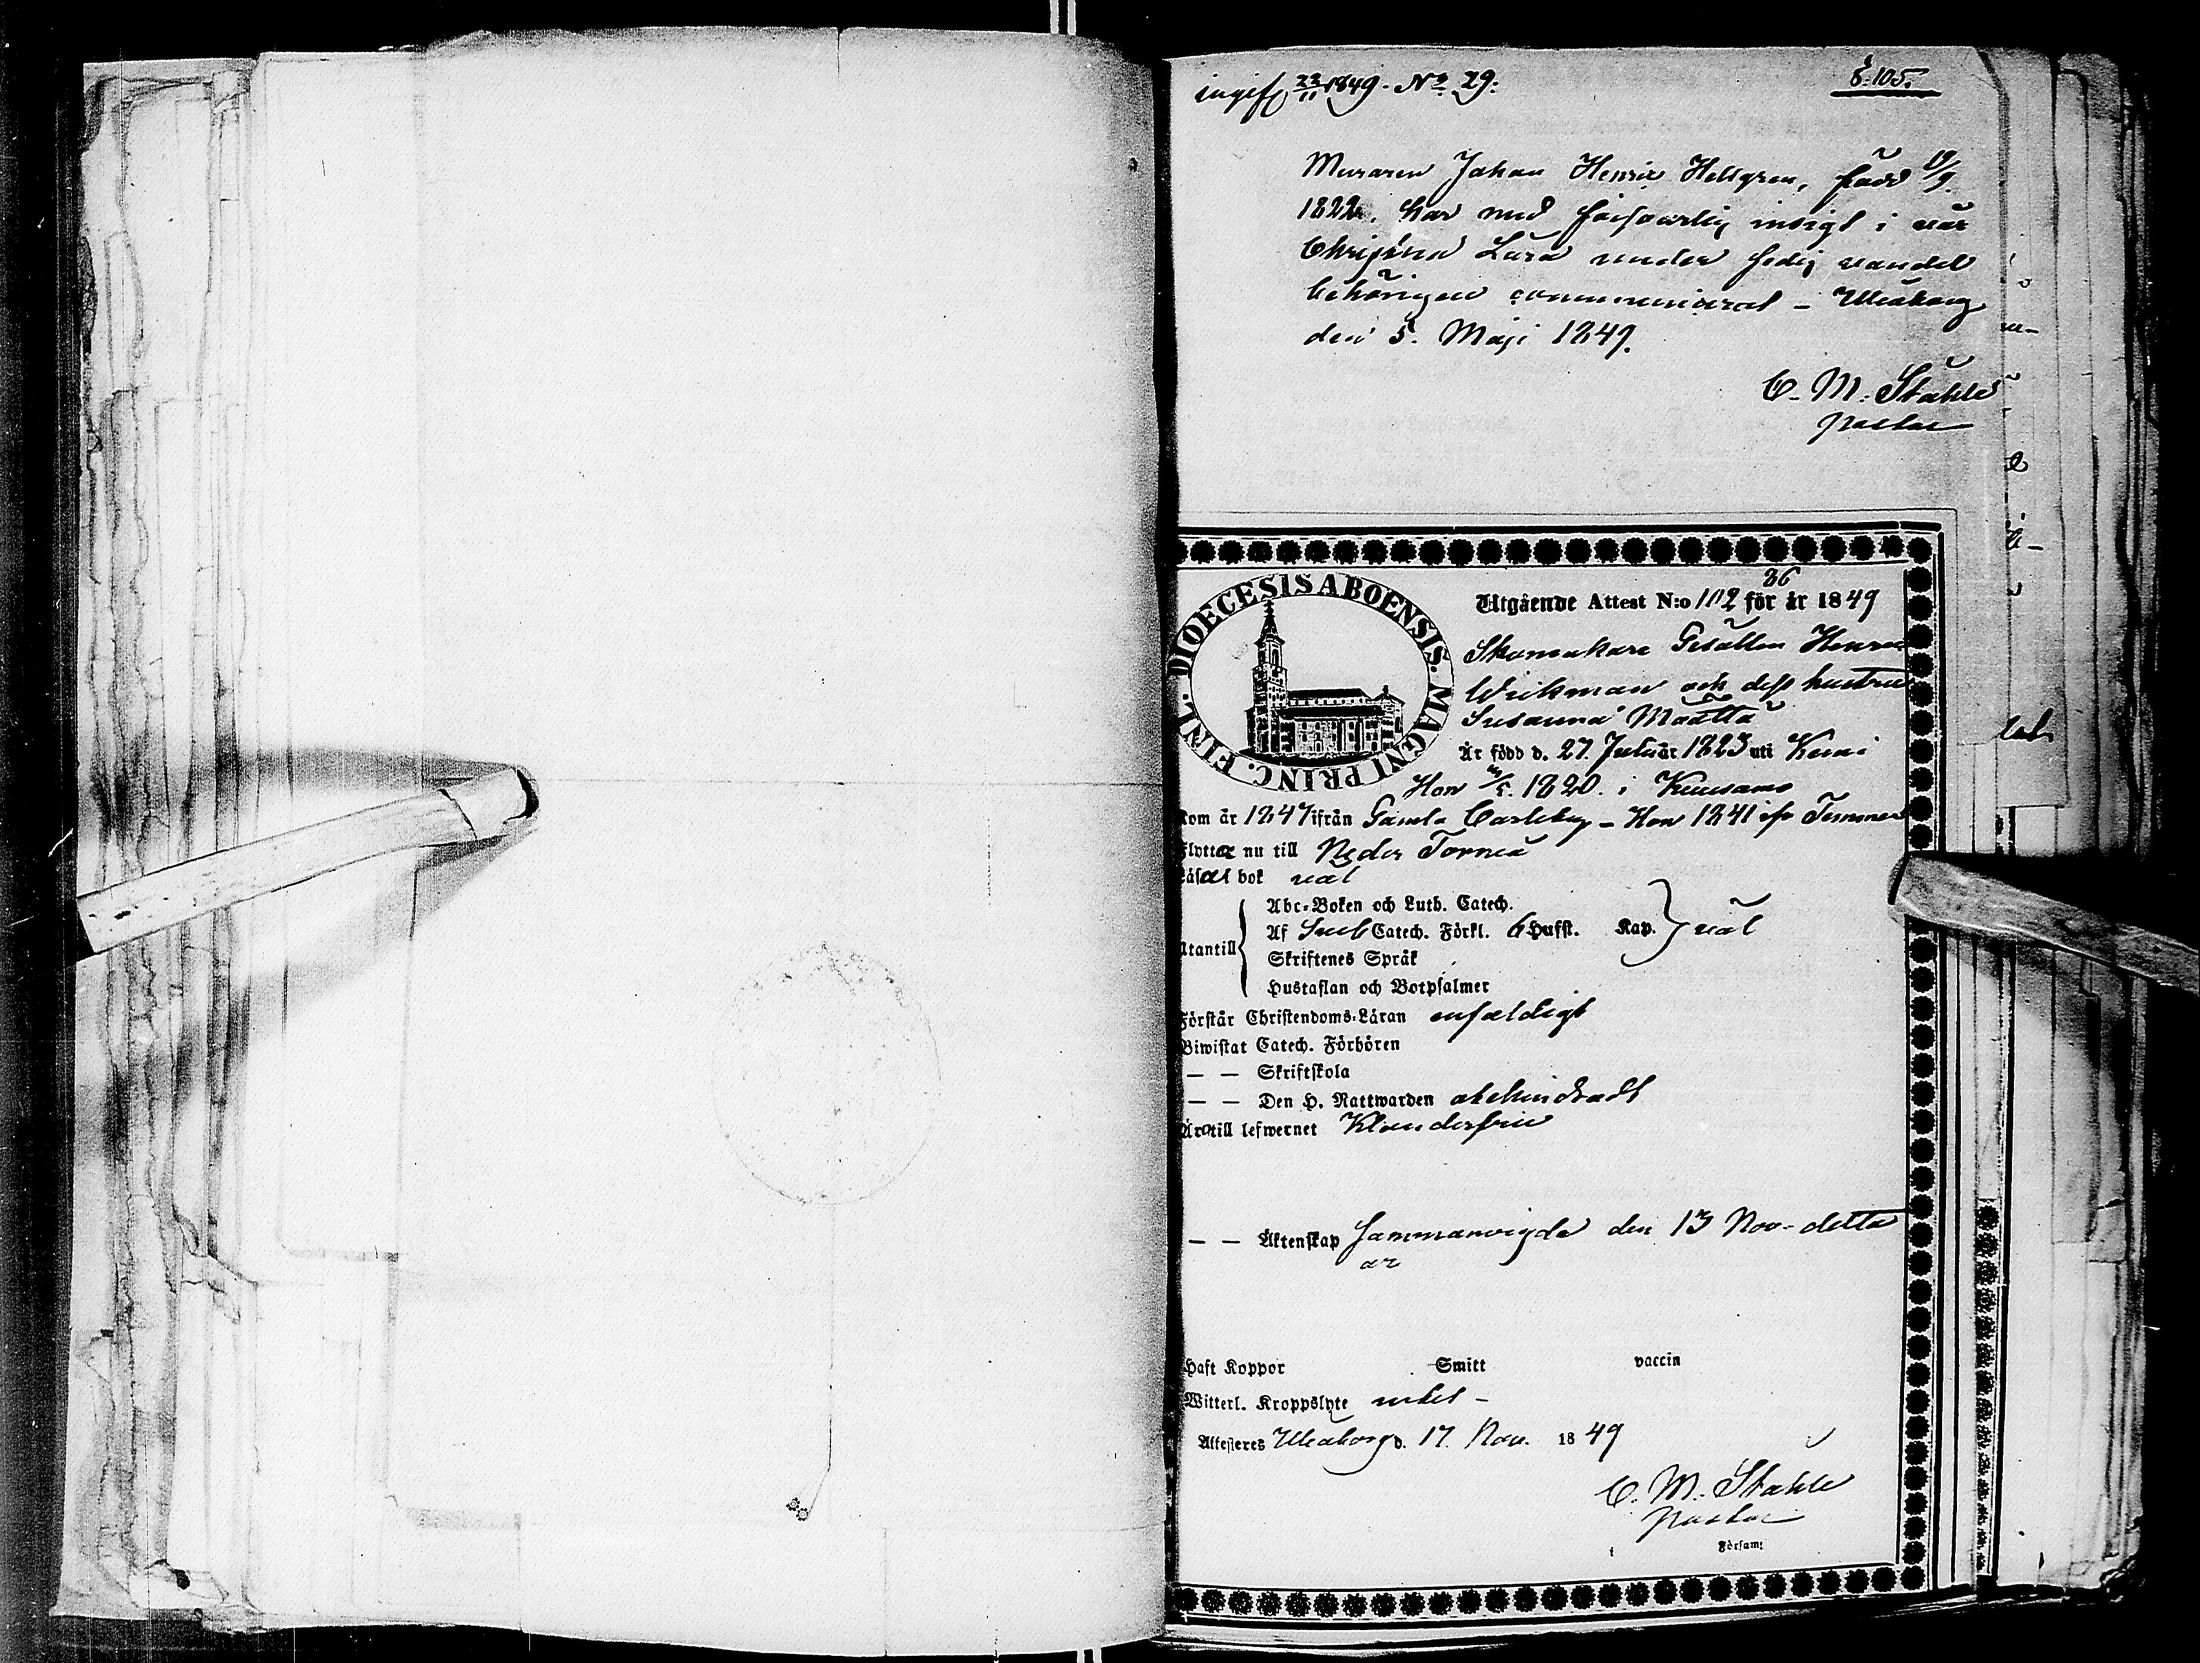 ingif 22/11 1849. No 29.
S. 105.
Muraren Johan Henric Hellgren, född 19/9
1822, har med försvarlig insigt i vår
Christna Lära under fredig vandel
behörigen communicerat – Uleåborg
den 5. Maji 1849.
C. M. Ståhle
Pastor
DIOECESIS ABOENSIS. MAGNI PRINC. FINL.
36
Utgående Attest N:o 102 för år 1849
Skomakare Gesällen Henric
Wickman och dess hustru
Susanna Määttä
Är född d. 27 Juli år 1823 uti Kemi
Hon /5. 1820. i Kuusamo
Kom år 1847 ifrån Gamla Carleby – Hon 1841 ifr Temmes
Flyttar nu till Neder Torneå
Läsat bok väl
Abc-Boken och Luth. Catech.
Af Sveb Catech. Förkl. 6 Hufst. Kap. väl
Utantill
Skriftenes Språk
Hustaflan och Botpsalmer
Förstår Christendoms-Läran enfaldigt
Biwistat Catech. Förhören
— — Skriftskola
— — Den H. Nattwarden obehindradt
Äro till lefwernet Klanderfrie
— — Äktenskap Sammanvigde den 13 Nov. detta
år
Haft Koppor Smitt vaccin
Witterl. Kroppslyte intet –
Attesteres Uleåborg d. 17. Nov. 1849
C. M. Ståhle
Pastor
Församl